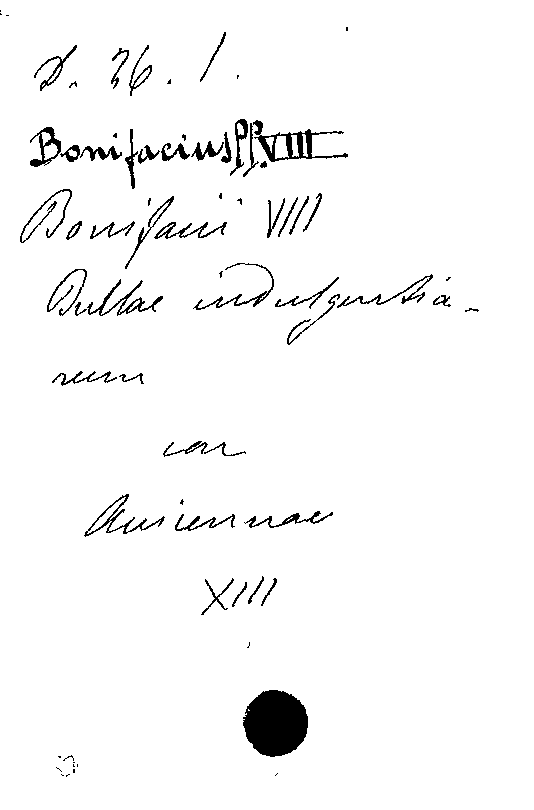 D. 26. 1.
Bonifacius pp. VIII
Bonifacii VIII
Bullae indulgentia-
rum
Avicennae
XIII